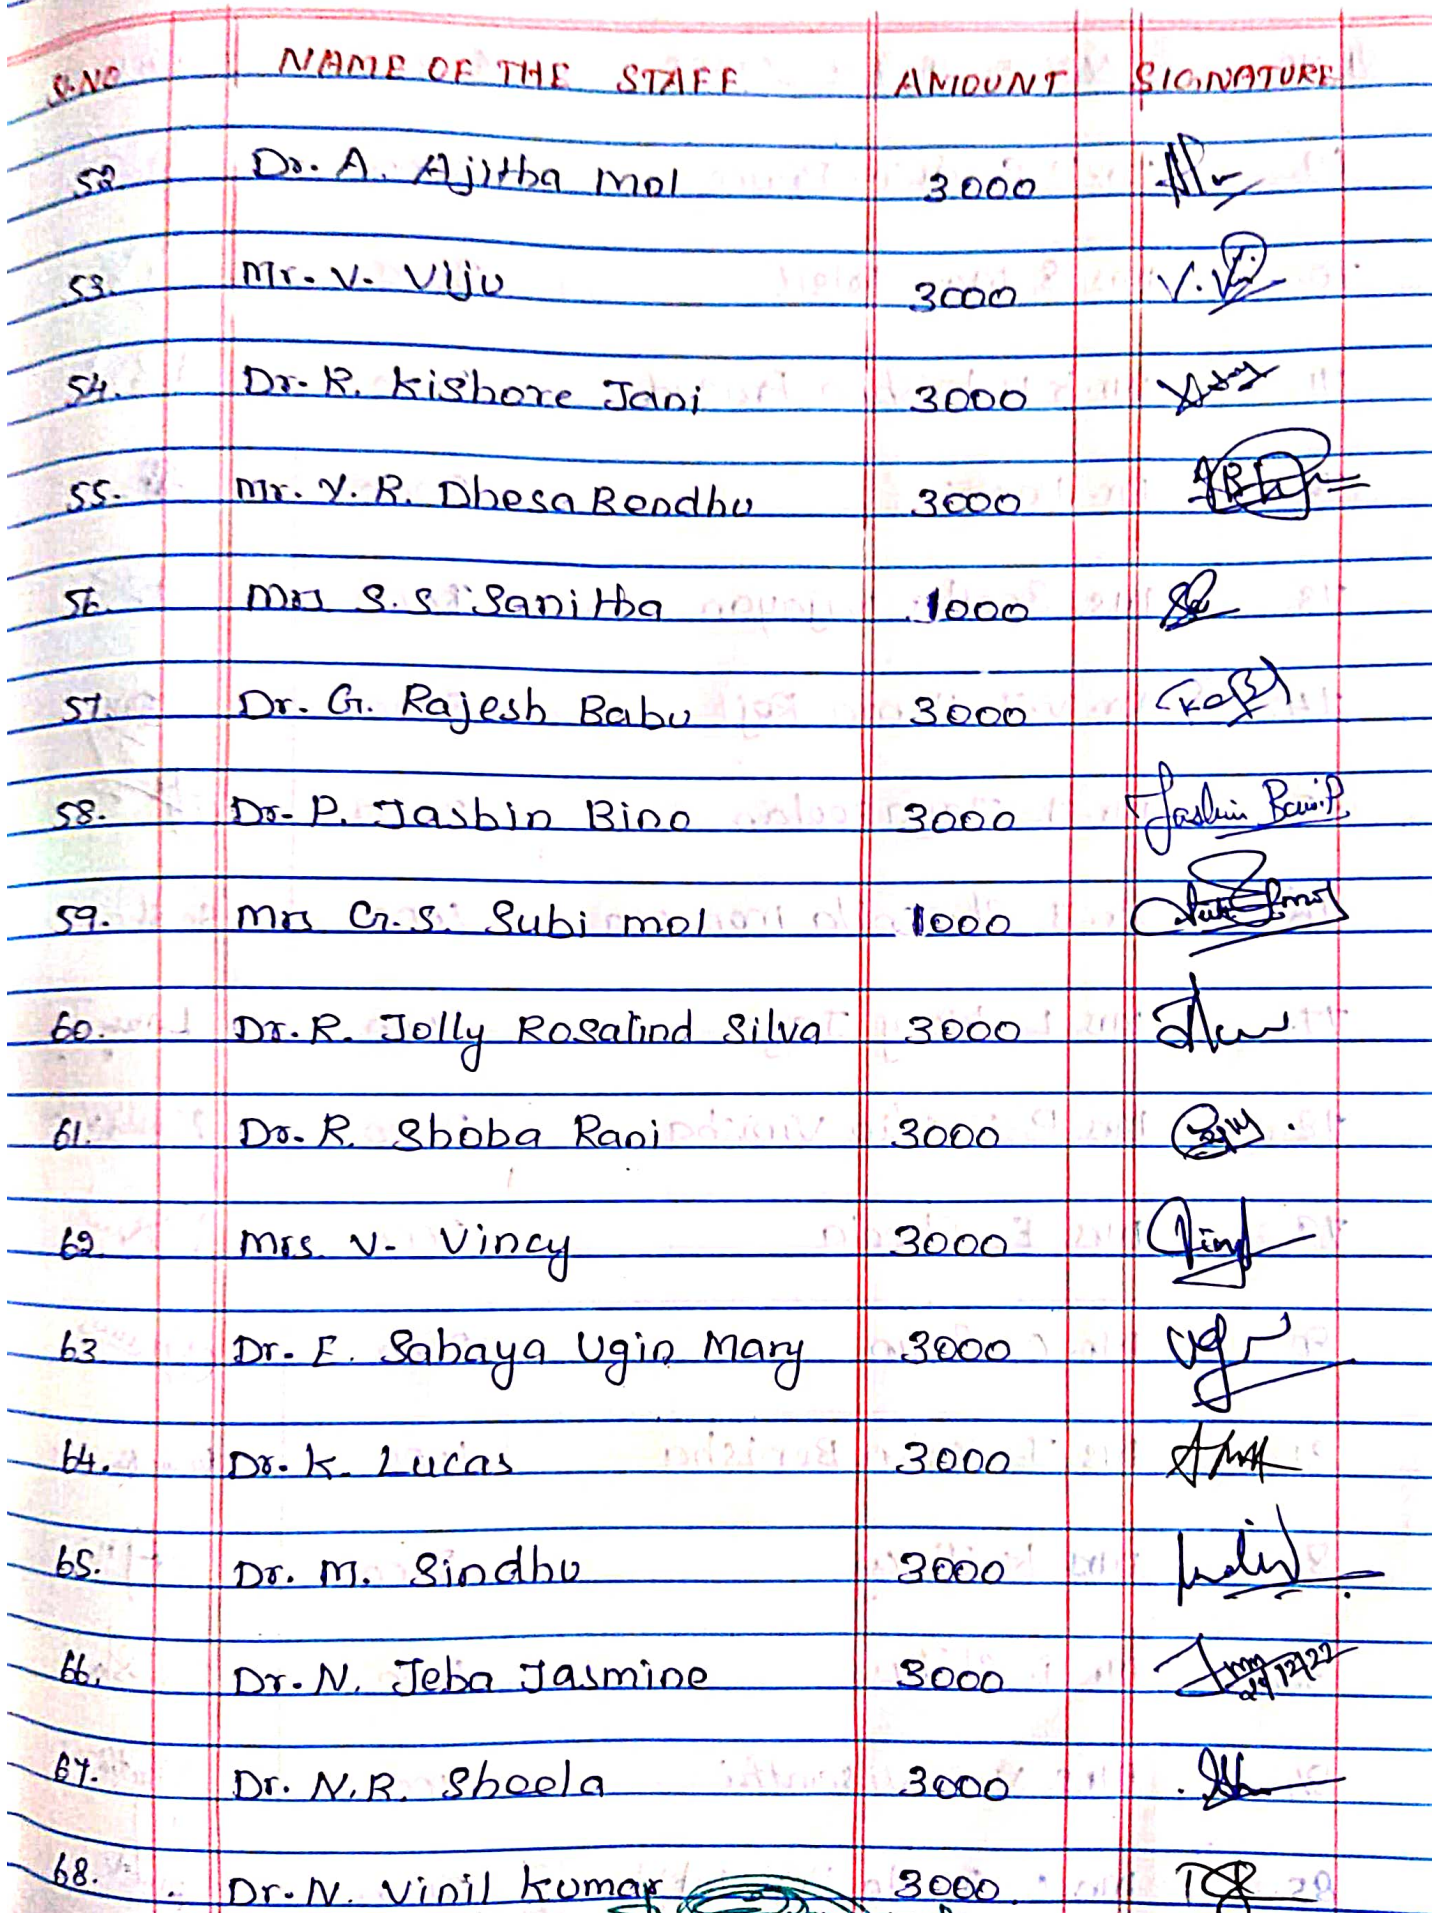 S.NO NAME OF THE STAFF AMOUNT SIGNATURE
52 Dr. A. Ajitha Mol 3000
53. Mr. V. Viju 3000 V. Viji
54. Dr. R. Kishore Jani 3000
55. Mr. Y. R. Dhesa Bendhu 3000
56. Mrs S.S. Sanitha 1000
57. Dr. G. Rajesh Babu 3000
58. Dr. P. Jashin Bino 3000
59. Mrs G.S. Subi mol 1000
60. Dr. R. Jolly Rosalind Silva 3000
61. Dr. R. Shoba Rani 3000
62. Mrs. V. Vincy 3000
63 Dr. E. Sahaya Ugin Mary 3000
64. Dr. K. Lucas 3000
65. Dr. M. Sindhu 3000
66. Dr. N. Jeba Jasmine 3000
67. Dr. N.R. Sheela 3000
68. Dr. N. Vinil Kumar 3000